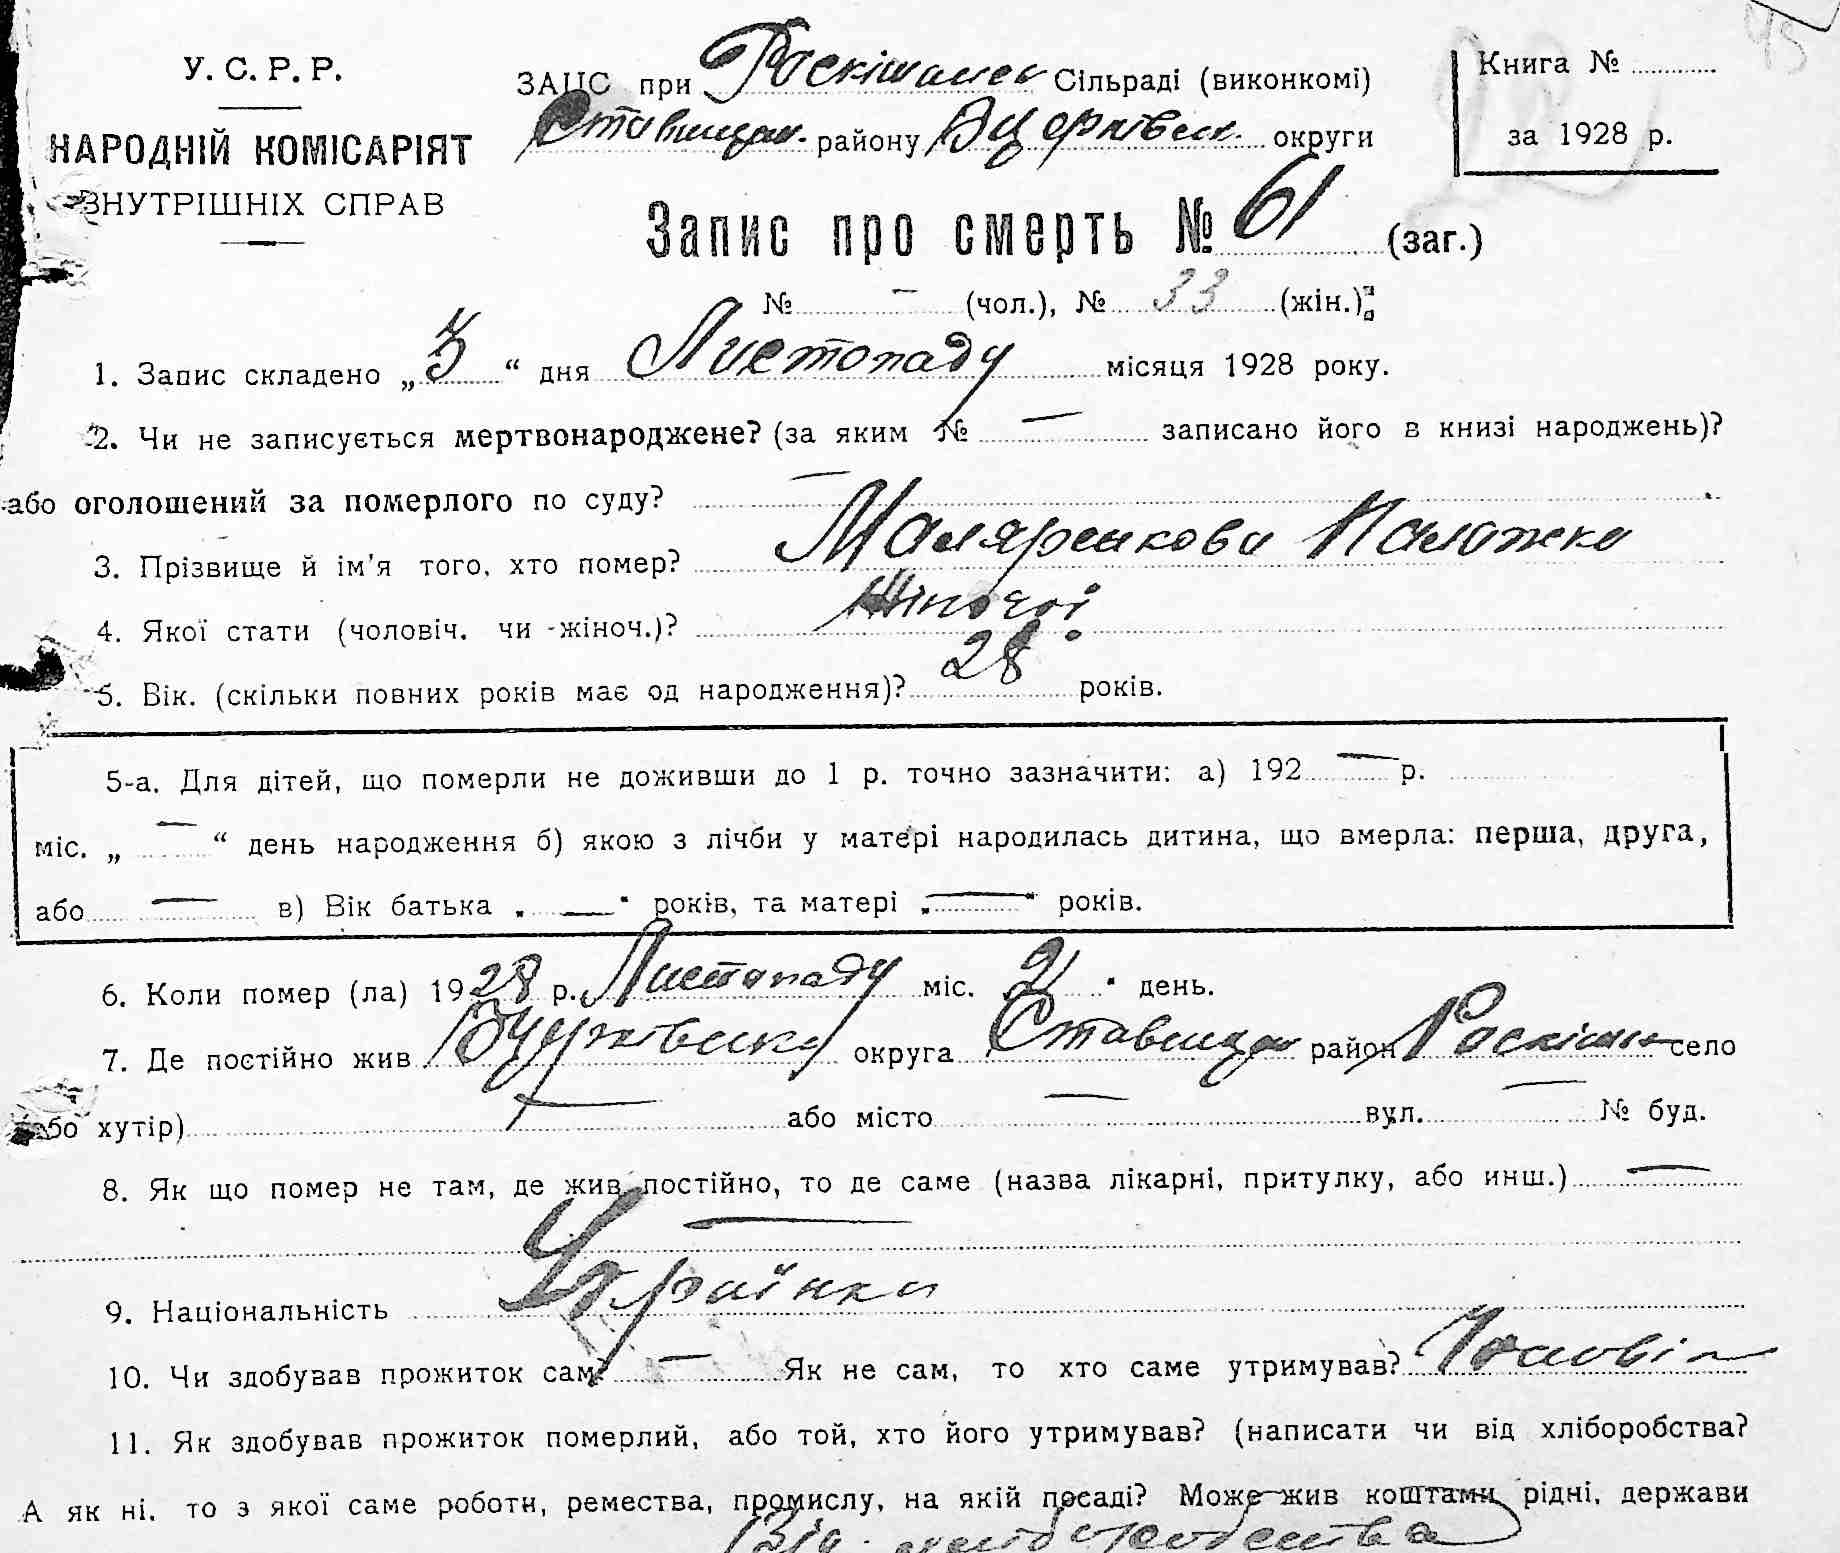 У. С. Р. Р.
НАРОДНІЙ КОМІСАРІЯТ
ВНУТРІШНІХ СПРАВ
ЗАЦС при Сільраді (виконкомі)
Ставищан. району Бцерківськ. округи
Книга №
за 1928 р.
Запис про смерть № 61 (заг.)
№ — (чол.), № 33 (жін.)
1. Запис складено „ “ дня Листопаду місяця 1928 року.
2. Чи не записується мертвонароджене? (за яким № — записано його в книзі народжень)?
або оголошений за померлого по суду? —
3. Прізвище й ім'я того, хто помер? Маляренкова Палажка
4. Якої стати (чоловіч. чи жіноч.)? Жіночої
5. Вік. (скільки повних років має од народження)? 28 років.
5-а. Для дітей, що померли не доживши до 1 р. точно зазначити: а) 192 — р.
міс. „ — “ день народження б) якою з лічби у матері народилась дитина, що вмерла: перша, друга,
або — в) Вік батька „ — “ років, та матері „ — “ років.
6. Коли помер (ла) 1928 р. Листопаду міс. 2 день.
7. Де постійно жив округа Ставищан район село
або хутір) — або місто — вул. — № буд.
8. Як що помер не там, де жив постійно, то де саме (назва лікарні, притулку, або инш.) —
—
9. Національність Українка
10. Чи здобував прожиток сам? — Як не сам, то хто саме утримував? Чоловік
11. Як здобував прожиток померлий, або той, хто його утримував? (написати чи від хліборобства?
А як ні, то з якої саме роботи, ремества, промислу, на якій посаді? Може жив коштами рідні, держави
Від хліборобства